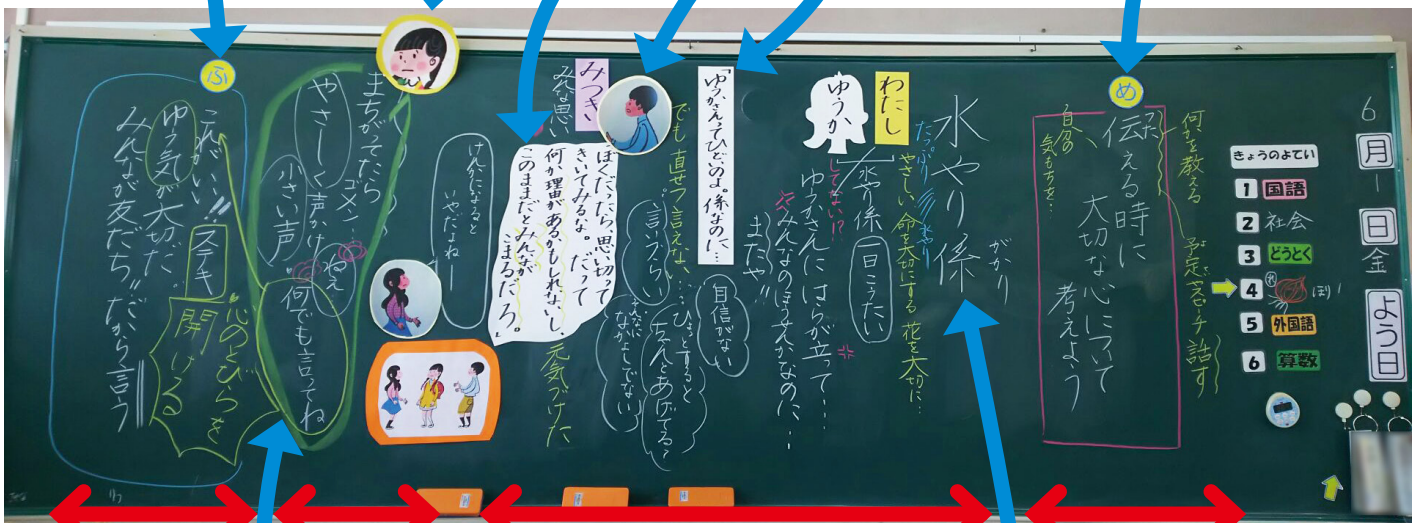 6月1日金よう日
きょうのよてい
1 国語
2 社会
3 どうとく
4 ほり
5 外国語
6 算数
何を教える 予定 スピーチ 話す
め
伝える時に
大切な心について
考えよう
自分の
気もちを…
水やり係
がかり
たっぷり 水やり
わたし
やさしい 命を大切にする 花を大切に…
ゆうか
水やり係 一日こうたい
してない!?
ゆうかさんに はらが立って…
みんなのほうせんかなのに…
まただ!!
「ゆうかさんってひどいのよ。係なのに…
自信がない
でも 直せつ 言えない…
ひょっとすると
ちゃんとあげてる?
言いづらい
そんなに
なかよしでない
みつき
みんな思い
元気づけた
ぼくだったら、思い切って
きいてみるな。だって
何か理由があるかもしれないし、
このままだとみんなが
こまるだろ。」
けんかになると
いやだよねー
まちがてたら
ゴメン…
やさしく 声かけ
小さい声
ねえ
何でも言ってね
ふ
これがいい!! ステキ
ゆう気が大切だ
みんなが友だち!!だから言う
心のとびらを
開ける